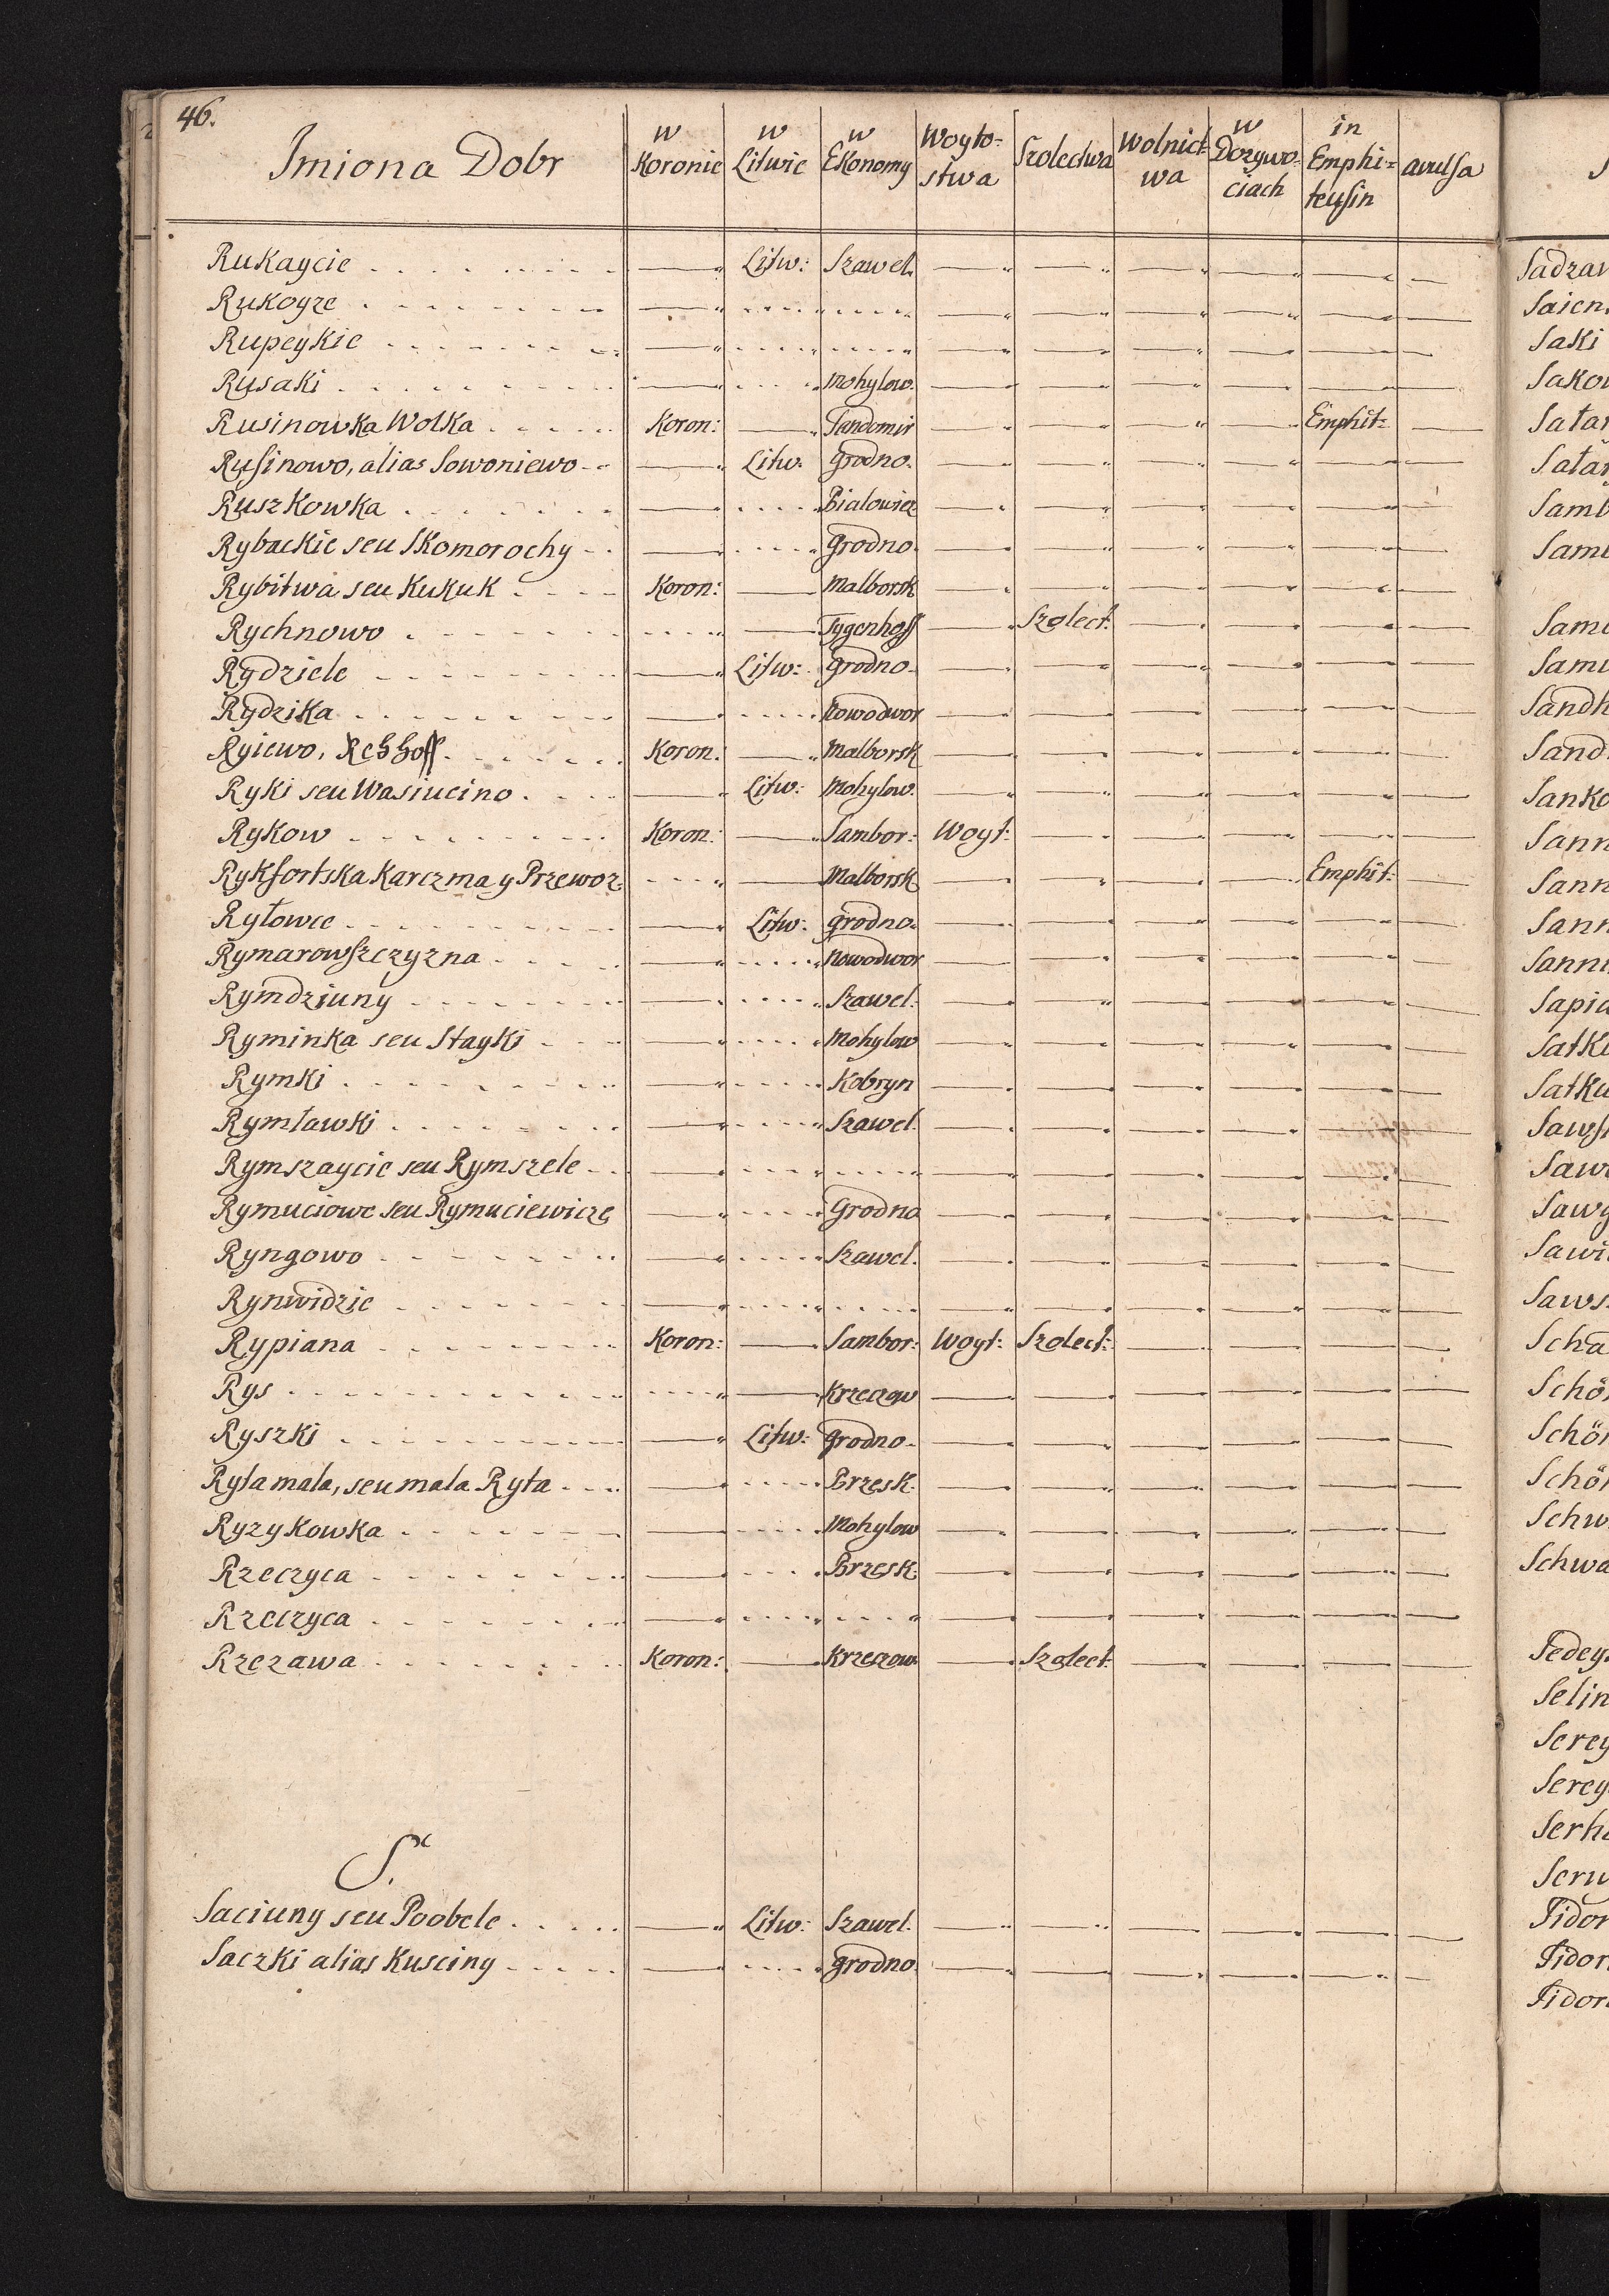 46.
Imiona Dobr | w Koronie | w Litwie | w Ekonomy | Woyto-stwa | Szolectwa | Wolnict-wa | w Dozywo-ciach | in Emphi-teusin | avulsa
Rukaycie . . . . Litw: Szawel.
Rukoyze
Rupeykie
Rusaki . . . . Mohylow.
Rusinowka Wolka . . . . Koron: Sandomir Emphit:
Rusinowo, alias Sowoniewo Litw. Grodno.
Ruszkowka . . . . Bialowiez
Rybackie seu Skomorochy Grodno.
Rybitwa seu Kukuk . . . . Koron: Malborsk
Rychnowo . . . . Tygenhoff Szolect:
Rydziele . . . . Litw: Grodno.
Rydzika . . . . Nowodwor
Ryiewo, Rehhoff . . . . Koron: Malborsk
Ryki seu Wasiucino . . . . Litw: Mohylow.
Rykow . . . . Koron: Sambor: Woyt:
Rykfortska Karczma y Przewoz. Malborsk Emphit:
Rytowce . . . . Litw: Grodno.
Rymarowszczyzna . . . . Nowodwor
Rymdziuny . . . . Szawel.
Ryminka seu Stayki . . . . Mohylow
Rymki . . . . Kobryn
Rymławki . . . . Szawel.
Rymszaycie seu Rymszele
Rymuciowe seu Rymuciewicze Grodno
Ryngowo . . . . Szawel.
Rynwidzie
Rypiana . . . . Koron: Sambor: Woyt: Szolect:
Rys . . . . Krzeczow
Ryszki . . . . Litw: Grodno.
Ryta mala, seu mala Ryta . . . . Brzesk.
Ryzykowka . . . . Mohylow
Rzeczyca . . . . Brzesk.
Rzeczyca
Rzezawa . . . . Koron: Krzeczow. Szolect.
S.
Saciuny seu Poobele . . . . Litw: Szawel.
Saczki alias Kusciny . . . . Grodno.